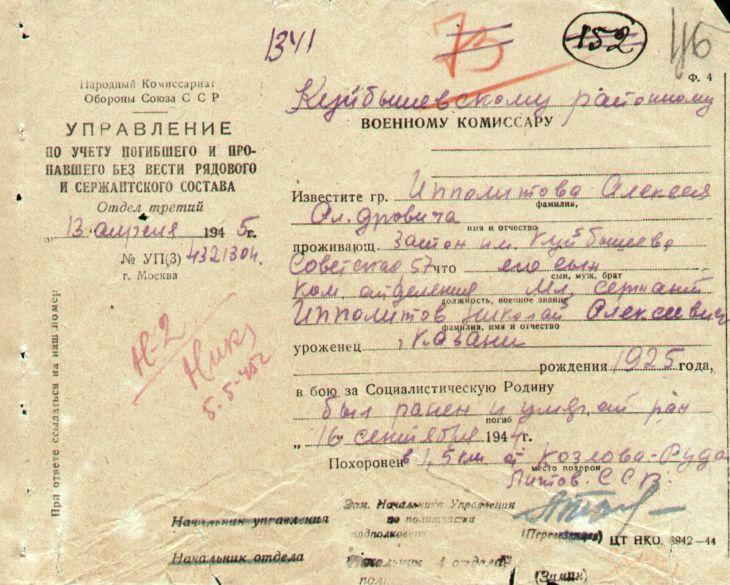 1341
73
152
Ф. 4
Народный Комиссариат
Обороны Союза ССР
УПРАВЛЕНИЕ
ПО УЧЕТУ ПОГИБШЕГО И ПРО-
ПАВШЕГО БЕЗ ВЕСТИ РЯДОВОГО
И СЕРЖАНТСКОГО СОСТАВА
Отдел третий
„13 апреля 1945г.
№ УП(3) 4321304
г. Москва
Н-2
5-5-45г
При ответе ссылаться на наш номер
Куйбышевскому районному
ВОЕННОМУ КОМИССАРУ
Известите гр. Ипполитова Алексея
фамилия,
Ал.дровича
имя и отчество
проживающ. Затон им. Куйбышева
Советская, 57 что его сын
сын, муж, брат
Ком отделение Мл. сержант
должность, военное звание
Ипполитов Николай Алексеевич
фамилия, имя и отчество
уроженец г. Казани
рождения 1925 года,
в бою за Социалистическую Родину
был ранен и умер от ран
погиб
„16 сентября 1944г.
Похоронен в 1,5 км от Козлова-Руда
место похорон
Литов. ССР.
Начальник управления
Зам. Начальника Управления
по политчасти
подполковник
(Перевезенцев)
ЦТ НКО. 3942—44
Начальник отдела
Начальник 4 отдела
(Зимин)